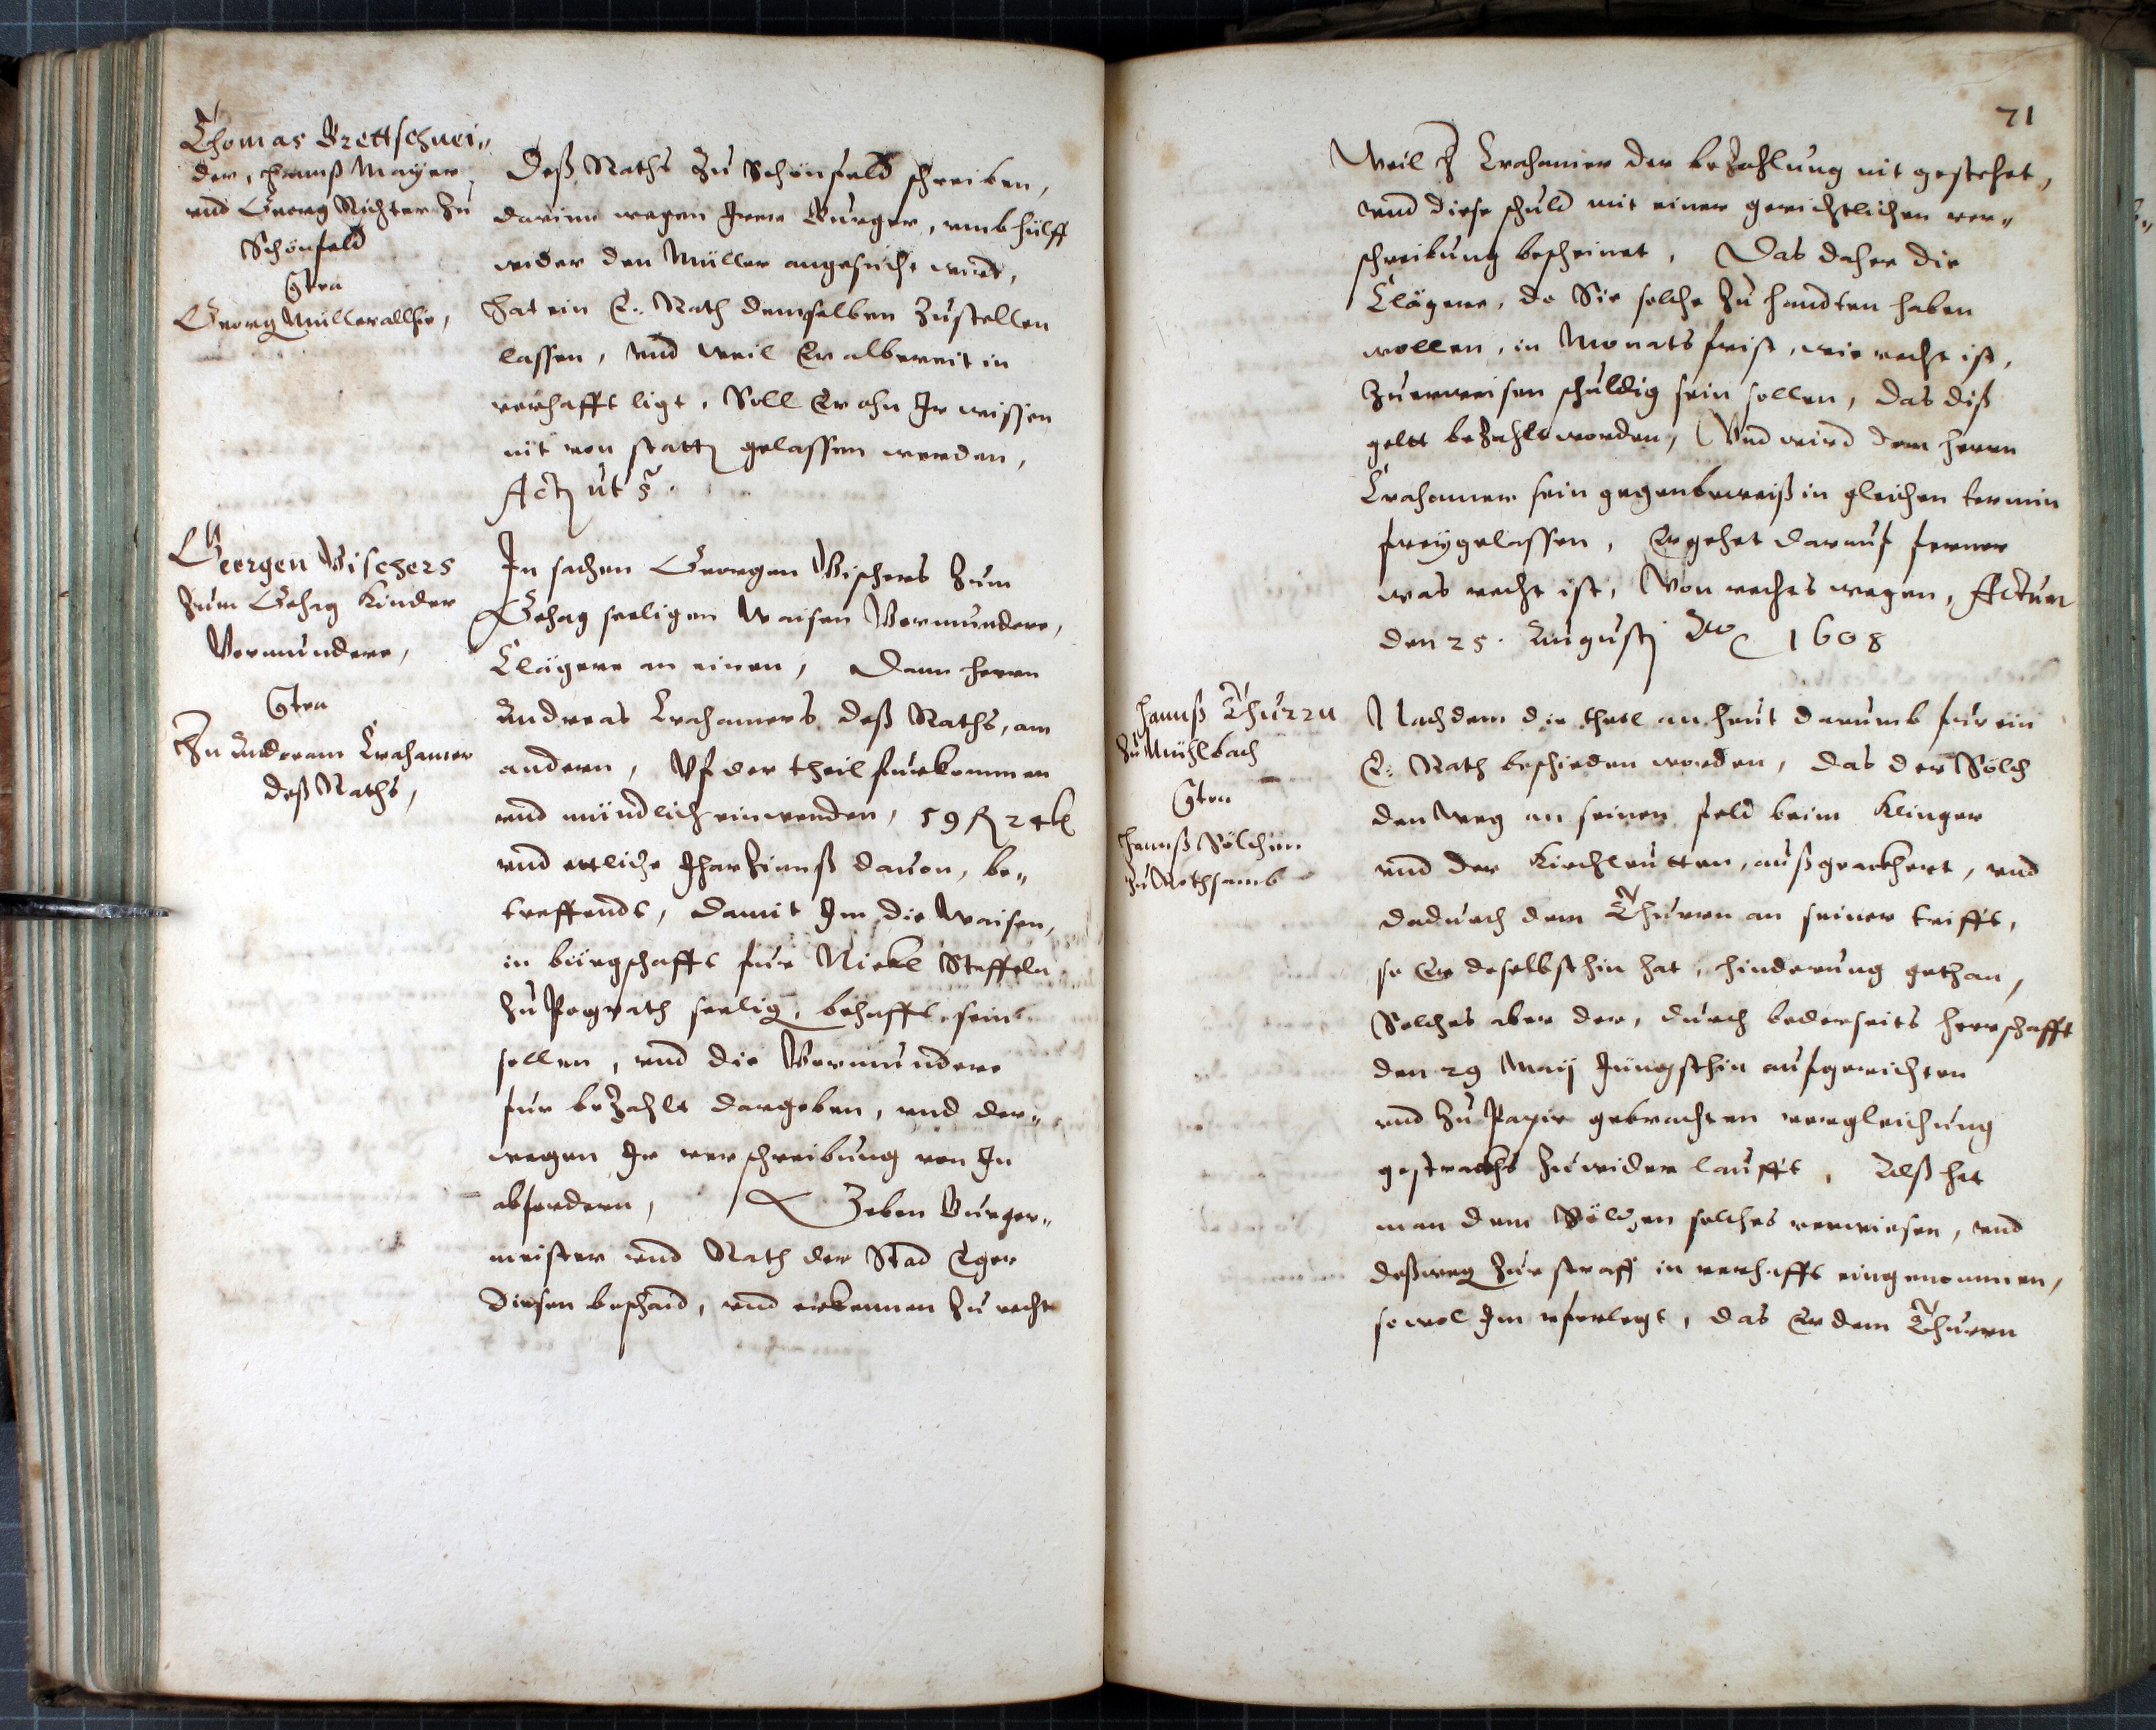 Thomas Brettschnei„
der, Hannß Mayer
vnd Georg Richter Zu
Schönfeld
Ctra
Georg Müller allhie,
Deß Raths Zu Schönfeld schreiben,
darinn wegen Irer Burger, vmb hülff
wider den Müller angesucht wirdt,
hat ein E. Rath demselben Zustellen
lassen, vnd weil Er albereit in
verhafft ligt, Soll Er ohn Ir wissen
nit von statt gelassen werden,
Act ut s.
Georgen Vischers
Zum Gehag Kinder
Vormundere,
Ctra
Hn Andream Crahamer
deß Raths,
In sachen Georgen Vischers Zum
Gehag seeligen Waisen Vormundere,
Clägere an einen, Dann herrn
Andreas Crahamers deß Raths, am
andern, Vf der theil fürkommen
vnd mündlich einwenden, 59 fl 24 k
vnd ettliche Jhar Zinnß dauon, be„
treffends, damit Im die Waisen,
in bürgschafft für Nickl Steffeln
Zu Pograth seelig, behafft sein
sollen, vnd die Vormundere
für beZahlt dargeben, vnd der„
wegen Ir verschreibung von Im
abfordern, Geben Burger„
meister vnd Rath der Stad Eger
diesen beschaid, vnd erkennen Zu recht
71
Weil H Crahamer der beZahlung nit gestehet,
vnnd diese schuld mit einer gerichtlichen ver„
schreibung bescheinet, Das daher die
Clägere, do Sie solche Zu handten haben
wollen, in Monats frist, wie recht ist,
Zuerweisen schuldig sein sollen, das diß
geltt beZahlt worden, Vnd wird dem herrn
Crahamer sein gegenbeweiß in gleichen termin
freygelassen, Ergehet darauf ferner
was recht ist, Von rechts wegen, Actum
den 25. Augusti Ao 1608
Hannß Thurrn
Zu Mühlbach
Ctra
Hannß Sölchen
Zu Rothsamb
Nachdem die theil an heut darumb für ein
E. Rath beschieden worden, das der Sölch
den weg an seinen feld beim Klinger
vnd der Kirchleutten, außgeackhert, vnd
dadurch dem Thurrn an seiner trifft,
so Er daselbsthin hat, hinderung gethan,
Solches aber der, durch bederseits herrschafft
den 29 May Jüngsthin aufgerichten
vnd Zu Papir gebrachten vergleichung
gestrackhs Zuwider laufft, Alß hat
man dem Sölchen solches verwiesen, vnd
deßweg Zur straff in verhafft eingenommen,
sowol Im vferlegt, das Er dem Thurrn